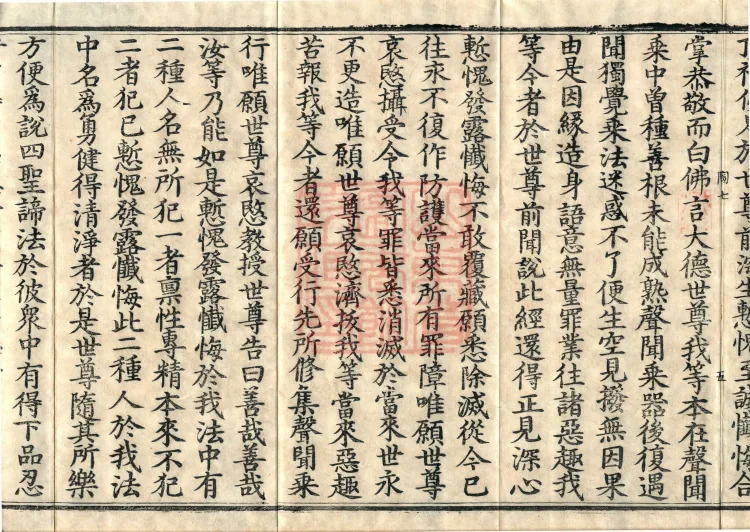 於世尊前深生慙愧至誠懺悔合
陶七 五
掌恭敬而白佛言大德世尊我等本在聲聞
乘中曾種善根未能成熟聲聞乘器後復遇
聞獨覺乘法迷惑不了便生空見撥無因果
由是因緣造身語意無量罪業往諸惡趣我
等今者於世尊前聞說此經還得正見深心
慙愧發露懺悔不敢覆藏願悉除滅從今已
往永不復作防護當來所有罪障唯願世尊
哀愍攝受令我等罪皆悉消滅於當來世永
不更造唯願世尊哀愍濟拔我等當來惡趣
苦報我等今者還願受行先所修集聲聞乘
行唯願世尊哀愍教授世尊告曰善哉善哉
汝等乃能如是慙愧發露懺悔於我法中有
二種人名無所犯一者禀性專精本來不犯
二者犯已慙愧發露懺悔此二種人於我法
中名爲勇健得清淨者於是世尊隨其所樂
方便爲說四聖諦法於彼衆中有得下品忍